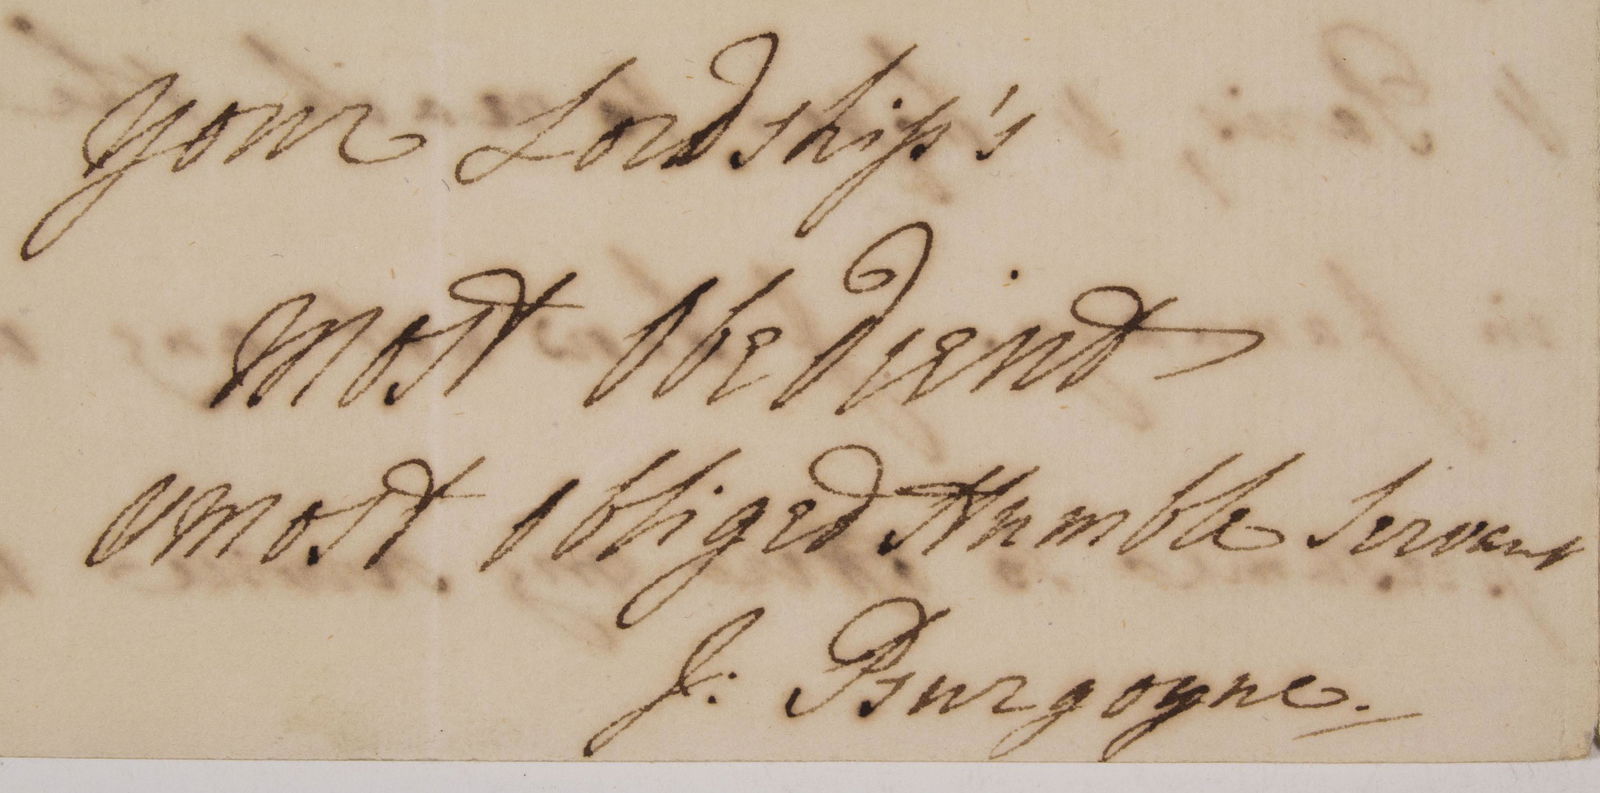 your Lordship's
most obedient
& most obliged Humble Servant
J: Burgoyne.